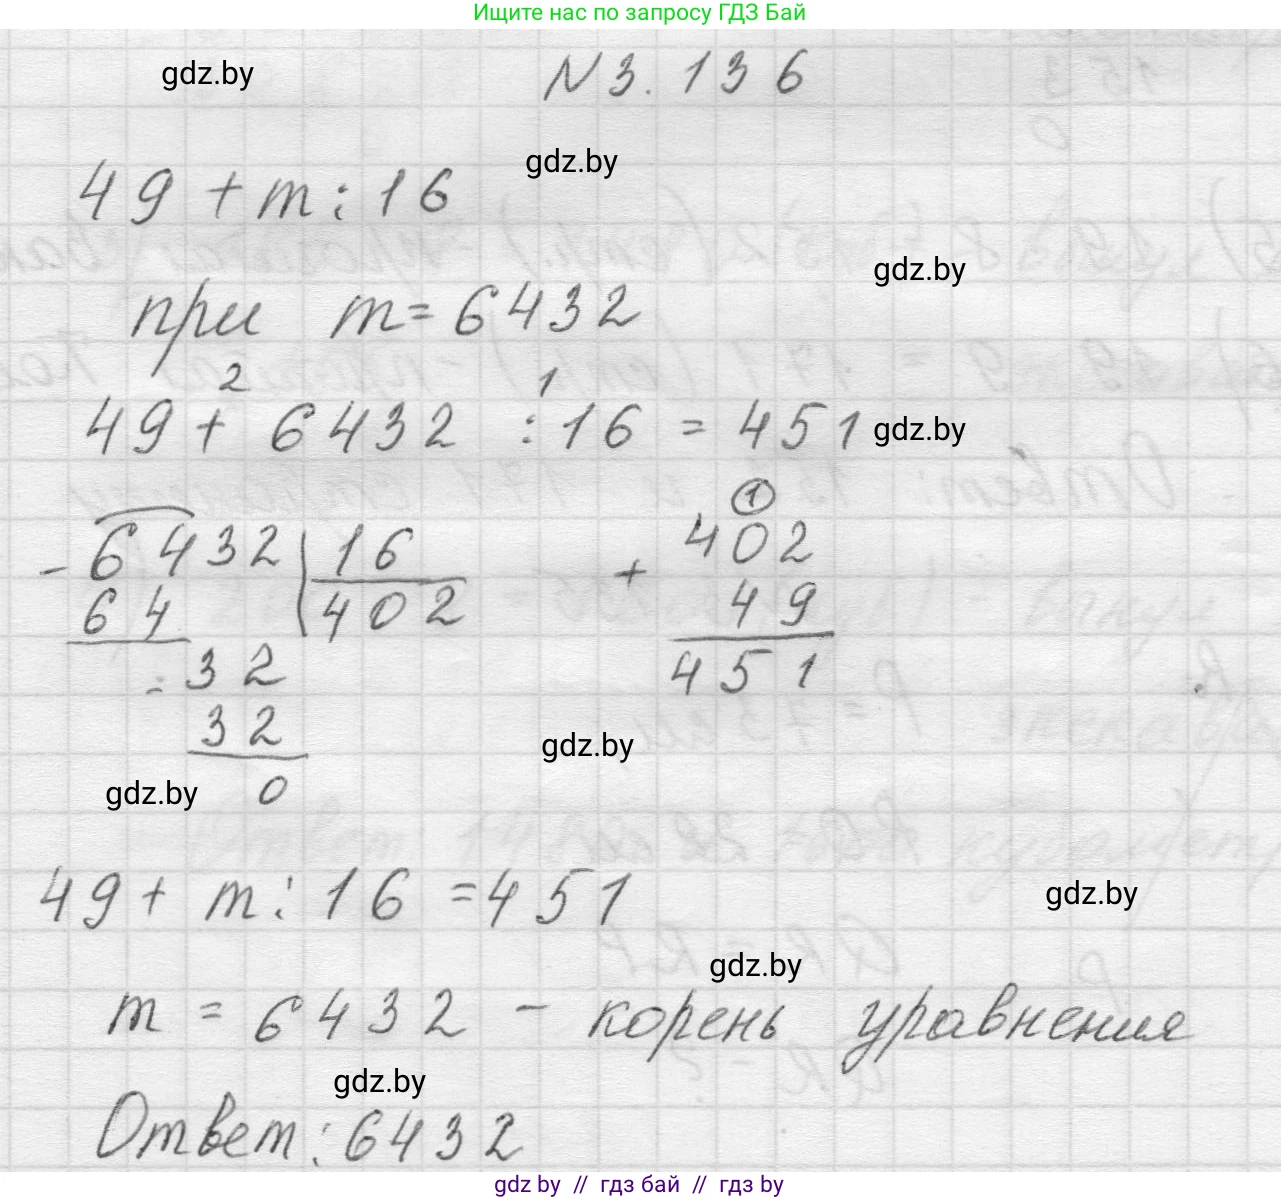 Ищите нас по запросу ГДЗ Бай
gdz.by
N 3.136
gdz.by
49 + m : 16
gdz.by
при m = 6432
2 1
49 + 6432 : 16 = 451
gdz.by
1
- 6432 | 16
64 402
32
32
0
402
+ 49
451
gdz.by
gdz.by
49 + m : 16 = 451
gdz.by
gdz.by
m = 6432 - корень уравнения
gdz.by
Ответ: 6432
gdz by // гдз бай // гдз by